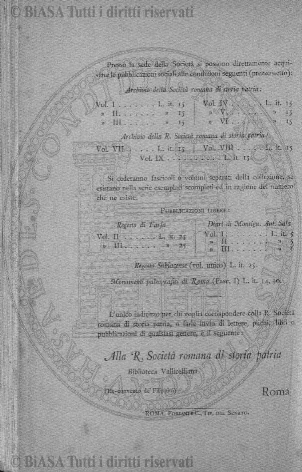 © BiASA Tutti i diritti riservati
Presso la sede della Società si possono direttamente acqui-
stare le pubblicazioni sociali alle condizioni seguenti
Archivio della Società romana di storia patria:
Vol. I L. it. 15 Vol. IV L. it. 15
» II » 15 » V » 15
» III » 15 » VI » 15
Archivio della R. Società romana di storia patria:
Vol. VII L. it. 15 Vol. VIII L. it. 15
Vol. IX L. it. 15
Si cederanno fascicoli o volumi separati della collezione, se
esistano nella serie esemplari scompleti ed in ragione del numero
che ne esiste.
Pubblicazioni
Regesto di Farfa
Vol. II L. it.
» III »
Vol. I L. it.
» II »
» III »
Regesto Sublacense (vol. unico) L. it. 25.
Monumenti paleografici di Roma (Fasc. I) L. it.
L'unico indirizzo per chi voglia corrispondere colla R. Società
romana di storia patria, o farle invio di lettere, plichi, libri o
pubblicazioni di qualsiasi genere, è il seguente:
Alla R. Società romana di storia patria
Biblioteca Vallicelliana
Roma
© BiASA Tutti i diritti riservati